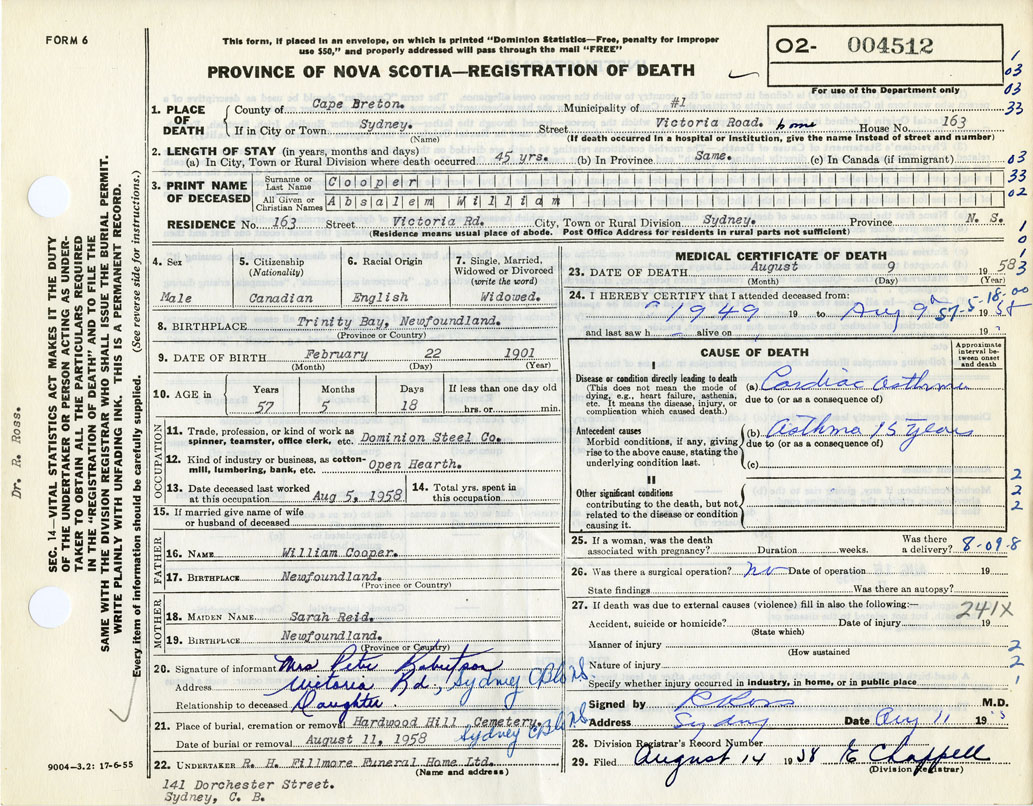 FORM 6
This form, if placed in an envelope, on which is printed "Dominion Statistics—Free, penalty for improper
use $50," and properly addressed will pass through the mail "FREE"
PROVINCE OF NOVA SCOTIA—REGISTRATION OF DEATH
02- 004512
For use of the Department only
1. PLACE OF DEATH
County of Cape Breton. Municipality of #1
If in City or Town Sydney. Street Victoria Road. home House No. 163
(Name) (If death occurred in a hospital or institution, give the name instead of street and number)
2. LENGTH OF STAY (in years, months and days)
(a) In City, Town or Rural Division where death occurred 45 yrs. (b) In Province Same. (c) In Canada (if immigrant)
3. PRINT NAME OF DECEASED
Surname or Last Name Cooper
All Given or Christian Names Absalem William
RESIDENCE No. 163 Street Victoria Rd. City, Town or Rural Division Sydney. Province N. S.
(Residence means usual place of abode. Post Office Address for residents in rural parts not sufficient)
4. Sex
Male
5. Citizenship
(Nationality)
Canadian
6. Racial Origin
English
7. Single, Married,
Widowed or Divorced
(write the word)
Widowed.
8. BIRTHPLACE Trinity Bay, Newfoundland.
(Province or Country)
9. DATE OF BIRTH February 22 1901
(Month) (Day) (Year)
10. AGE in
Years Months Days If less than one day old
57 5 18 hrs. or min.
OCCUPATION
11. Trade, profession, or kind of work as
spinner, teamster, office clerk, etc. Dominion Steel Co.
12. Kind of industry or business, as cotton-
mill, lumbering, bank, etc. Open Hearth.
13. Date deceased last worked
at this occupation Aug 5, 1958
14. Total yrs. spent in
this occupation
15. If married give name of wife
or husband of deceased
FATHER
16. NAME William Cooper.
17. BIRTHPLACE Newfoundland.
(Province or Country)
MOTHER
18. MAIDEN NAME Sarah Reid.
19. BIRTHPLACE Newfoundland.
(Province or Country)
20. Signature of informant Mrs Pete Robertson
Address Victoria Rd., Sydney CB NS
Relationship to deceased Daughter.
21. Place of burial, cremation or removal Hardwood Hill Cemetery.
Sydney CB NS
Date of burial or removal August 11, 1958
22. UNDERTAKER R. H. Fillmore Funeral Home Ltd.
(Name and address)
141 Dorchester Street.
Sydney, C. B.
MEDICAL CERTIFICATE OF DEATH
23. DATE OF DEATH August 9 1958
(Month) (Day) (Year)
24. I HEREBY CERTIFY that I attended deceased from:
1949 19 to Aug 9 1958
57-5-18-00
and last saw h alive on 19
CAUSE OF DEATH
Approximate
interval be-
tween onset
and death
I
Disease or condition directly leading to death
(This does not mean the mode of
dying, e.g., heart failure, asthenia,
etc. It means the disease, injury, or
complication which caused death.)
(a) Cardiac asthma
due to (or as a consequence of)
Antecedent causes
Morbid conditions, if any, giving
rise to the above cause, stating the
underlying condition last.
(b) Asthma 15 years
due to (or as a consequence of)
(c)
II
Other significant conditions
contributing to the death, but not
related to the disease or condition
causing it.
25. If a woman, was the death
associated with pregnancy? Duration weeks. Was there
a delivery? 8-09-8
26. Was there a surgical operation? no Date of operation 19
State findings Was there an autopsy?
27. If death was due to external causes (violence) fill in also the following:—
241X
Accident, suicide or homicide? Date of injury 19
(State which)
Manner of injury
(How sustained
Nature of injury
Specify whether injury occurred in industry, in home, or in public place
Signed by R Ross M.D.
Address Sydney Date Aug 11 19
28. Division Registrar's Record Number
29. Filed August 14 1958 E Chappell
(Division Registrar)
1
03
03
33
03
33
02
1
0
1
3
2
2
2
2
2
1
Dr. R. Ross.
SEC. 14—VITAL STATISTICS ACT MAKES IT THE DUTY
OF THE UNDERTAKER OR PERSON ACTING AS UNDER-
TAKER TO OBTAIN ALL THE PARTICULARS REQUIRED
IN THE "REGISTRATION OF DEATH" AND TO FILE THE
SAME WITH THE DIVISION REGISTRAR WHO SHALL ISSUE THE BURIAL PERMIT.
WRITE PLAINLY WITH UNFADING INK. THIS IS A PERMANENT RECORD.
Every item of information should be carefully supplied. (See reverse side for instructions.)
9004-3.2: 17-6-55